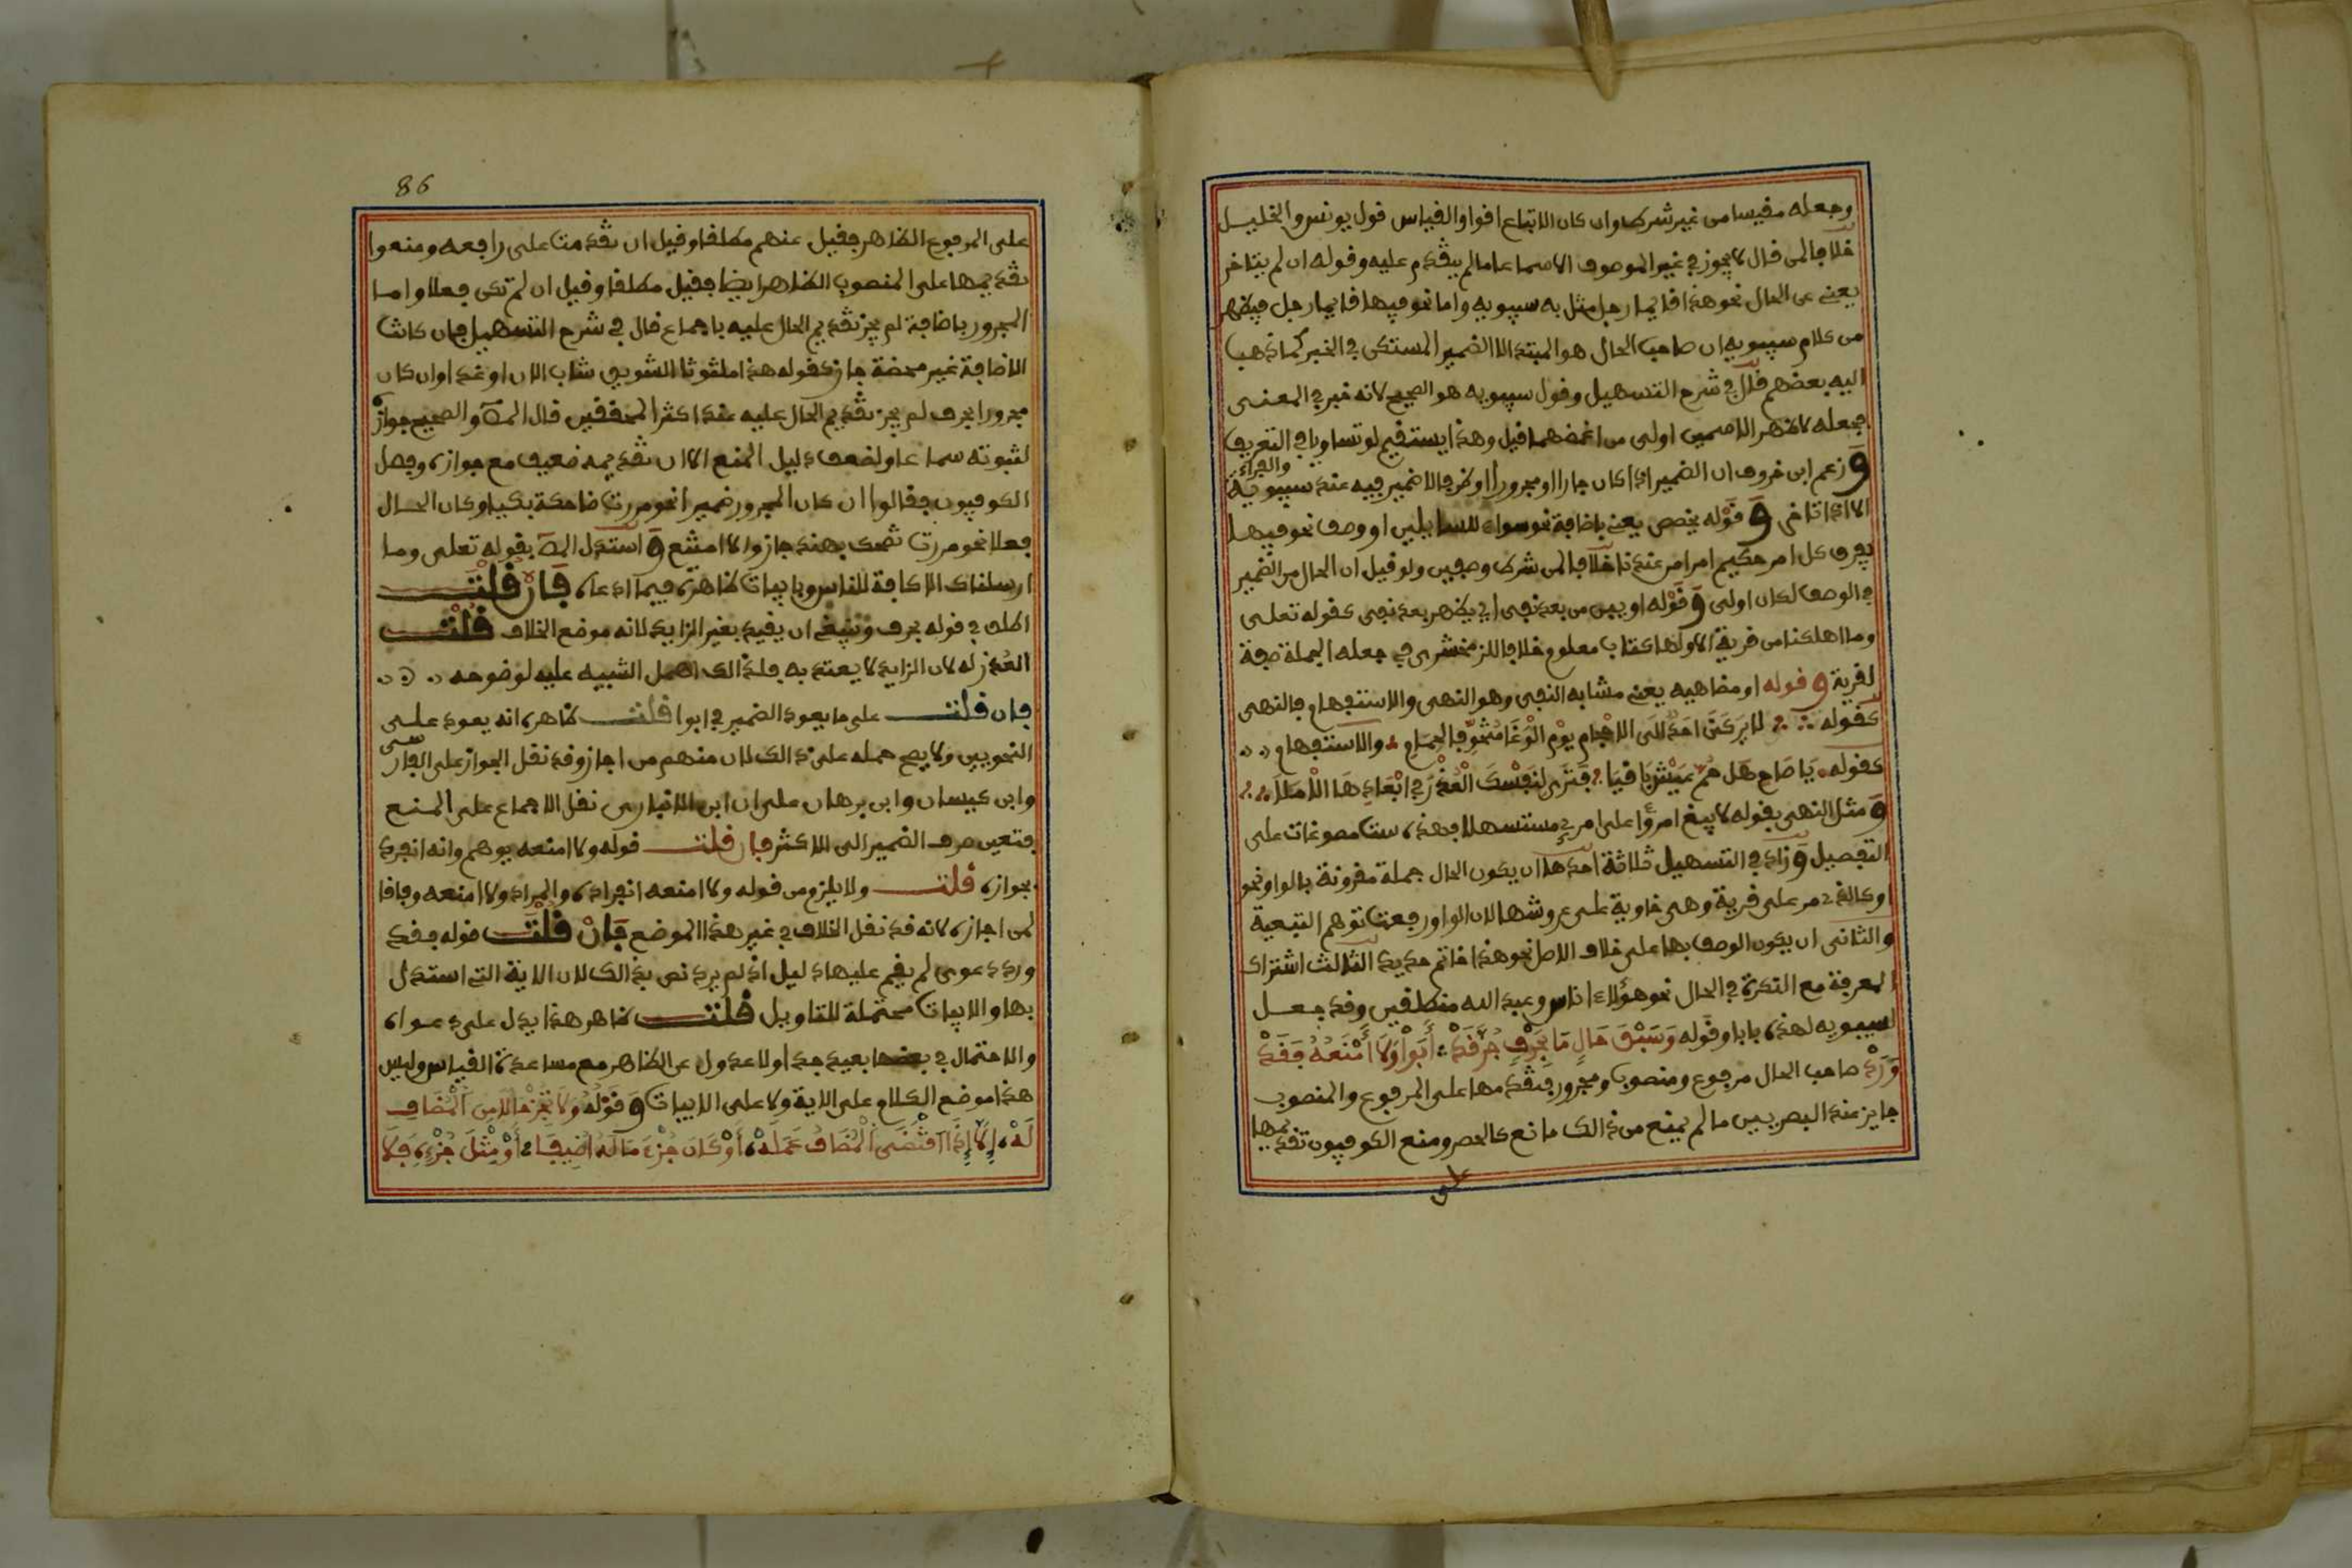 وجعله مقيسا من غير شرط وان كان الاتباع اقوا والقياس قول يونس والخليل
خلافا لمن قال لا يجوز في غير الموصوف الا سماعا ما لم يتقدم عليه وقوله ان لم يتاخر
يعني عن الحال نحو هذا قايما رجل مثل به سيبويه واما نحو فيها قايما رجل فيظهر
من كلام سيبويه ان صاحب الحال هو المبتدا لا الضمير المستكن في الخبر كما ذهب
اليه بعضهم قال في شرح التسهيل وقول سيبويه هو الصحيح لانه خبر في المعنى
فجعله لاظهر الاسمين اولى من اغمضهما قيل وهذا يستقيم لو تساويا في التعريف
وزعم ابن خروف ان الضمير اذا كان جارا او مجرورا او ظرفا لا ضمير فيه عند سيبويه والفراء
الا اذا تاخر وقوله يخصص يعني باضافة نحو سواء للسايلين او وصف نحو فيها
يفرق كل امر حكيم امرا من عندنا خلافا لمن شرط وصفين ولو قيل ان الحال من الضمير
في الوصف لكان اولى وقوله او يبن من بعد نفي اي يظهر بعد نفي كقوله تعلى
وما اهلكنا من قرية الا ولها كتاب معلوم خلافا للزمخشري في جعله الجملة صفة
لقرية وقوله او مضاهيه يعني مشابه النفي وهو النهي والاستفهام فالنهي
كقوله لا يركنن احد الى الاحجام يوم الوغا متخوفا لحمام والاستفهام
كقوله يا صاح هل حم عيش باقيا فترى لنفسك العذر في ابعادها الاملا
ومثل النهي بقوله لا يبغ امرؤا على امرئ مستسهلا فهذه ست مسوغات على
التفصيل وزاد في التسهيل ثلاثة احدها ان يكون الحال جملة مقرونة بالواو نحو
او كالذي مر على قرية وهي خاوية على عروشها لان الواو رفعت توهم التبعية
والثاني ان يكون الوصف بها على خلاف الاصل نحو هذا خاتم حديد الثالث اشتراك
المعرفة مع النكرة في الحال نحو هؤلاء اناس وعبد الله منطلقين وقد جعل
سيبويه لهذه بابا وقوله وَسَبْقَ حَالٍ مَا بِحَرْفٍ جُرَّ قَدْ أَبَوْا وَلَا أَمْنَعُهُ فَقَدْ
وَرَدْ صاحب الحال مرفوع ومنصوب ومجرور فتقدمها على المرفوع والمنصوب
جايز عند البصريين ما لم يمنع من ذالك مانع كالحصر ومنع الكوفيون تقديمها
على
86
على المرفوع الظاهر فقيل عنهم مطلقا وقيل ان تقدمت على رافعه ومنعوا
تقديمها على المنصوب الظاهر ايضا فقيل مطلقا وقيل ان لم تكن فعلا واما
المجرور باضافة لم يجز تقديم الحال عليه باجماع قال في شرح التسهيل فان كانت
الاضافة غير محضة جاز كقوله هذا ملتوتا السويق شارب الان او غدا وان كان
مجرورا بحرف لم يجز تقديم الحال عليه عند اكثر المحققين قال المص والصحيح جوازه
لثبوته سماعا ولضعف دليل المنع الا ان تقديمه ضعيف مع جوازه وفصل
الكوفيون فقالوا ان كان المجرور ضميرا نحو مررت ضاحكة بك او كان الحال
فعلا نحو مررت تضحك بهند جاز والا امتنع واستدل المص بقوله تعلى وما
ارسلناك الا كافة للناس وبابيات ظاهرة فيما ادعاه فَإِن قُلْتَ
اطلق في قوله بحرف وينبغي ان يقيد بغير الزايد لانه موضع الخلاف قُلْتُ
العذر له لان الزايد لا يعتد به فلذالك اهمل التنبيه عليه لوضوحه
فان قلت على ما يعود الضمير في ابوا قلت ظاهره انه يعود على
النحويين ولا يصح حمله على ذالك لان منهم من اجاز وقد نقل الجواز على الفارسي
وابن كيسان وابن برهان على ان ابن الانباري نقل الاجماع على المنع
فتعين صرف الضمير الى الاكثر فان قلت قوله ولا امنعه يوهم وانه انفرد
بجوازه قلت ولا يلزم من قوله ولا امنعه انفراده والمراد ولا امنعه وفاقا
لمن اجازه لانه قد نقل الخلاف في غير هذا الموضع فَإِنْ قُلْتَ قوله فقد
ورد دعوى لم يقم عليها دليل اذ لم يرد نص بذالك لان الاية التي استدل
بها والابيات محتملة للتاويل قُلْتُ ظاهر هذا يدل على دعواه
والاحتمال في بعضها بعيد جدا ولا عدول عن الظاهر مع مساعدة القياس وليس
هذا موضع الكلام على الاية ولا على الابيات وقوله وَلَا تُجِزْ حَالًا مِنَ الْمُضَافِ
لَهْ إِلَّا إِذَا اقْتَضَى الْمُضَافُ عَمَلَهْ أَوْ كَانَ جُزْءَ مَا لَهُ أُضِيفَا أَوْ مِثْلَ جُزْئِهِ فَلَا